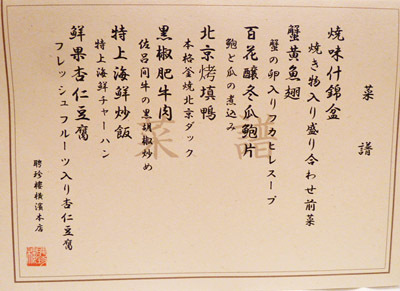 菜譜
焼味什錦盆
焼き物入り盛り合わせ前菜
蟹黄魚翅
蟹の卵入りフカヒレスープ
百花釀冬瓜鮑片
鮑と瓜の煮込み
北京烤填鴨
本格釜焼北京ダック
黒椒肥牛肉
佐呂間牛の黒胡椒炒め
特上海鮮炒飯
特上海鮮チャーハン
鮮果杏仁豆腐
フレッシュフルーツ入り杏仁豆腐
聘珍樓横濱本店
菜譜